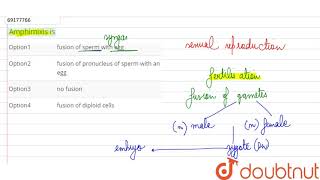 69177766
Amphimixis is
Option1 fusion of sperm with egg
syngas
Option2 fusion of pronucleus of sperm with an egg
Option3 no fusion
Option4 fusion of diploid cells
sexual reproduction
fertilis ation
fusion of gametes
(n) male (n) female
embryo zygote (2n)
doubtnut